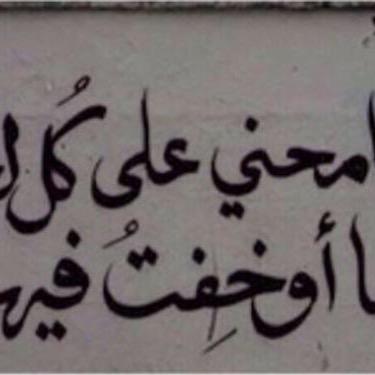 امحني على كُل
ا أو خِفتُ فيه